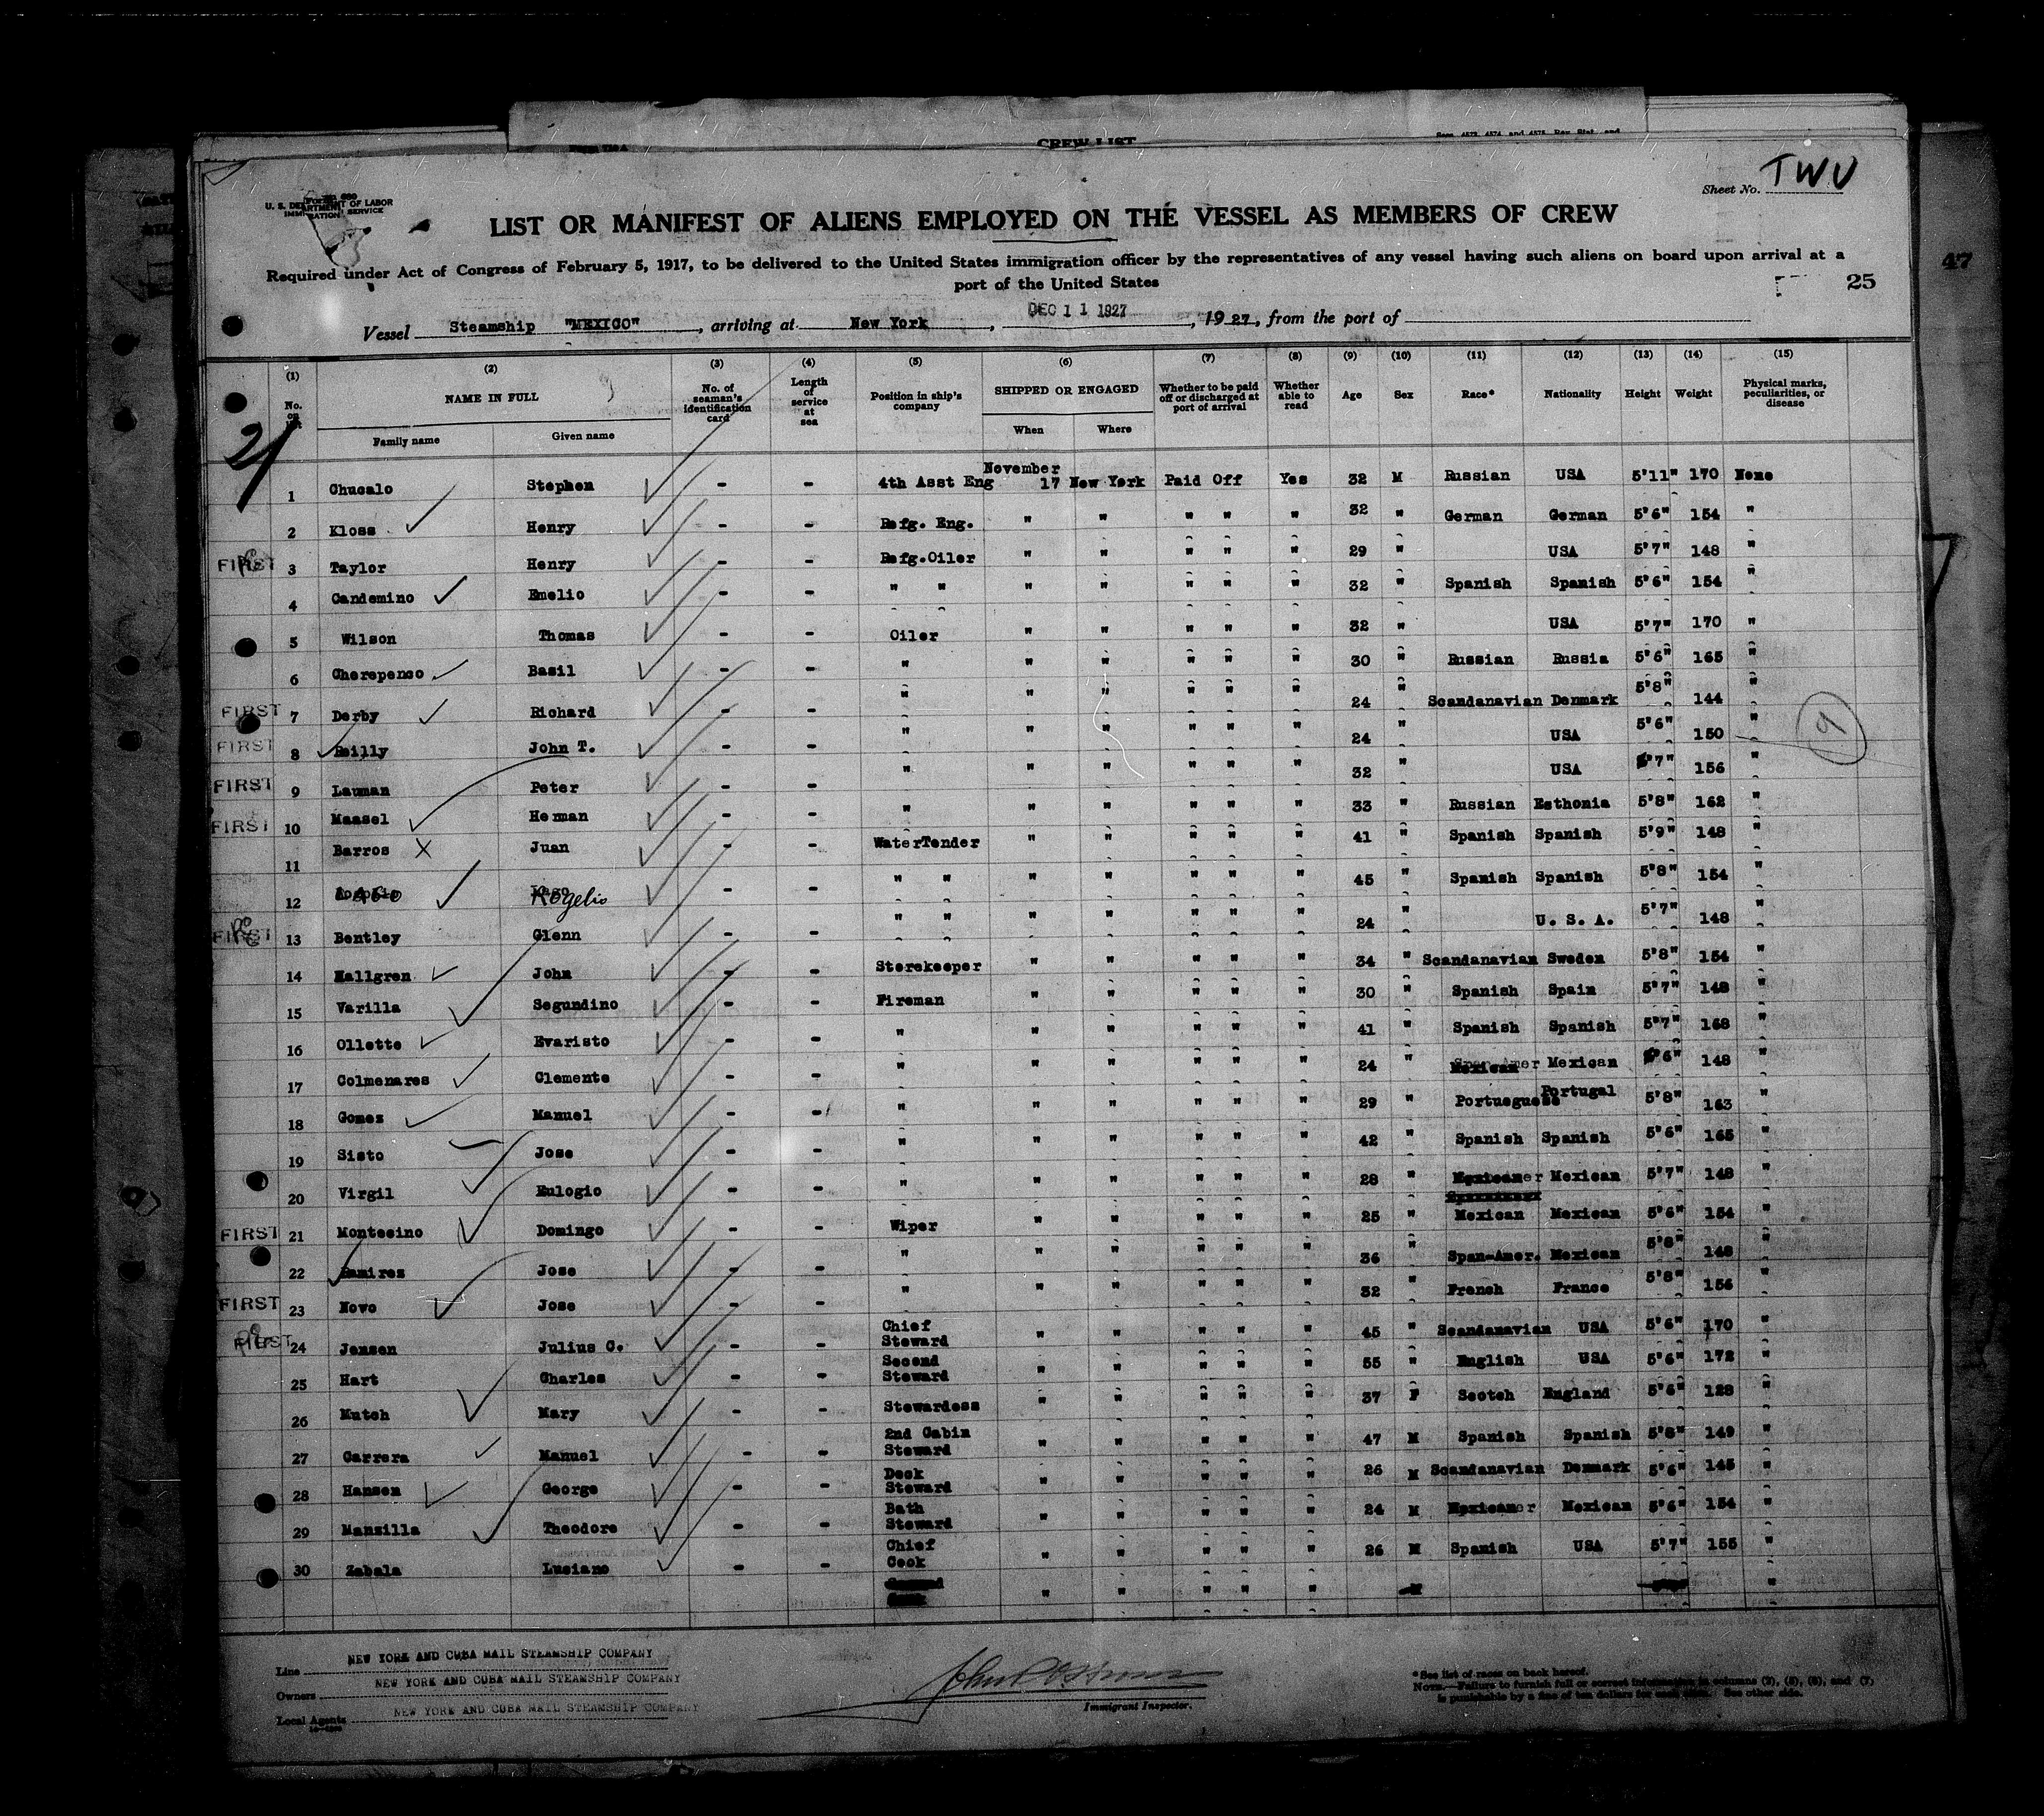 CREW LIST
Secs. 4573, 4574, and 4575, Rev. Stat. and
U. S. DEPARTMENT OF LABOR
IMMIGRATION SERVICE
Sheet No. TWO
LIST OR MANIFEST OF ALIENS EMPLOYED ON THE VESSEL AS MEMBERS OF CREW
Required under Act of Congress of February 5, 1917, to be delivered to the United States immigration officer by the representatives of any vessel having such aliens on board upon arrival at a
port of the United States
25
47
Vessel Steamship "MEXICO", arriving at New York, DEC 11 1927, 1927, from the port of
(1) (2) (3) (4) (5) (6) (7) (8) (9) (10) (11) (12) (13) (14) (15)
No. on NAME IN FULL No. of seaman's identification card Length of service at sea Position in ship's company SHIPPED OR ENGAGED Whether to be paid off or discharged at port of arrival Whether able to read Age Sex Race* Nationality Height Weight Physical marks, peculiarities, or disease
Family name Given name When Where
21
1 Chucalo Stephen - - 4th Asst Eng November 17 New York Paid Off Yes 32 M Russian USA 5'11" 170 None
2 Kloss Henry - - Refg. Eng. " " " " " 32 " German German 5'6" 154 "
FIRST 3 Taylor Henry - - Refg.Oiler " " " " " 29 " USA 5'7" 148 "
4 Candemino Emelio - - " " " " " " " 32 " Spanish Spanish 5'6" 154 "
5 Wilson Thomas - - Oiler " " " " " 32 " USA 5'7" 170 "
6 Cherepenso Basil - - " " " " " " 30 " Russian Russia 5'6" 165 "
FIRST 7 Derby Richard - - " " " " " " 24 " Scandanavian Denmark 5'8" 144 "
FIRST 8 Reilly John T. - - " " " " " " 24 " USA 5'6" 150 " 9
FIRST 9 Lauman Peter - - " " " " " " 32 " USA 5'7" 156 "
FIRST 10 Maasel Herman - - " " " " " " 33 " Russian Esthonia 5'8" 162 "
11 Barros X Juan - - WaterTender " " " " " 41 " Spanish Spanish 5'9" 148 "
12 Rogelio - - " " " " " " " 45 " Spanish Spanish 5'8" 154 "
FIRST 13 Bentley Glenn - - " " " " " " " 24 " U. S. A. 5'7" 148 "
14 Hallgren John - - Storekeeper " " " " " 34 " Scandanavian Sweden 5'8" 154 "
15 Varilla Segundino - - Fireman " " " " " 30 " Spanish Spain 5'7" 148 "
16 Ollette Evaristo - - " " " " " " 41 " Spanish Spanish 5'7" 168 "
17 Colmenares Clemente - - " " " " " " 24 " Mexican Mexican 5'6" 148 "
18 Gomez Manuel - - " " " " " " 29 " Portueguese Portugal 5'8" 163 "
19 Sisto Jose - - " " " " " " 42 " Spanish Spanish 5'6" 165 "
20 Virgil Eulogio - - " " " " " " 28 " Mexican Mexican 5'7" 148 "
FIRST 21 Montesino Domingo - - Wiper " " " " " 25 " Mexican Mexican 5'6" 154 "
22 Ramirez Jose - - " " " " " " 36 " Span-Amer. Mexican 5'8" 148 "
FIRST 23 Novo Jose - - " " " " " " 32 " French France 5'8" 156 "
FIRST 24 Jensen Julius C. - - Chief Steward " " " " " 45 " Scandanavian USA 5'6" 170 "
25 Hart Charles - - Second Steward " " " " " 55 " English USA 5'6" 172 "
26 Mutch Mary - - Stewardess " " " " " 37 F Scotch England 5'6" 128 "
27 Carrera Manuel - - 2nd Cabin Steward " " " " " 47 M Spanish Spanish 5'8" 149 "
28 Hansen George - - Deck Steward " " " " " 26 M Scandanavian Denmark 5'6" 145 "
29 Mansilla Theodore - - Bath Steward " " " " " 24 M Mexican Mexican 5'6" 154 "
30 Zabala Luciano - - Chief Cook " " " " " 26 M Spanish USA 5'7" 155 "
" " " " " "
Line NEW YORK AND CUBA MAIL STEAMSHIP COMPANY
Owners NEW YORK AND CUBA MAIL STEAMSHIP COMPANY
Local Agents NEW YORK AND CUBA MAIL STEAMSHIP COMPANY
Immigrant Inspector.
*See list of races on back hereof.
NOTE.—Failure to furnish full or correct information in columns (2), (5), (6), and (7)
is punishable by a fine of ten dollars for each alien. See other side.